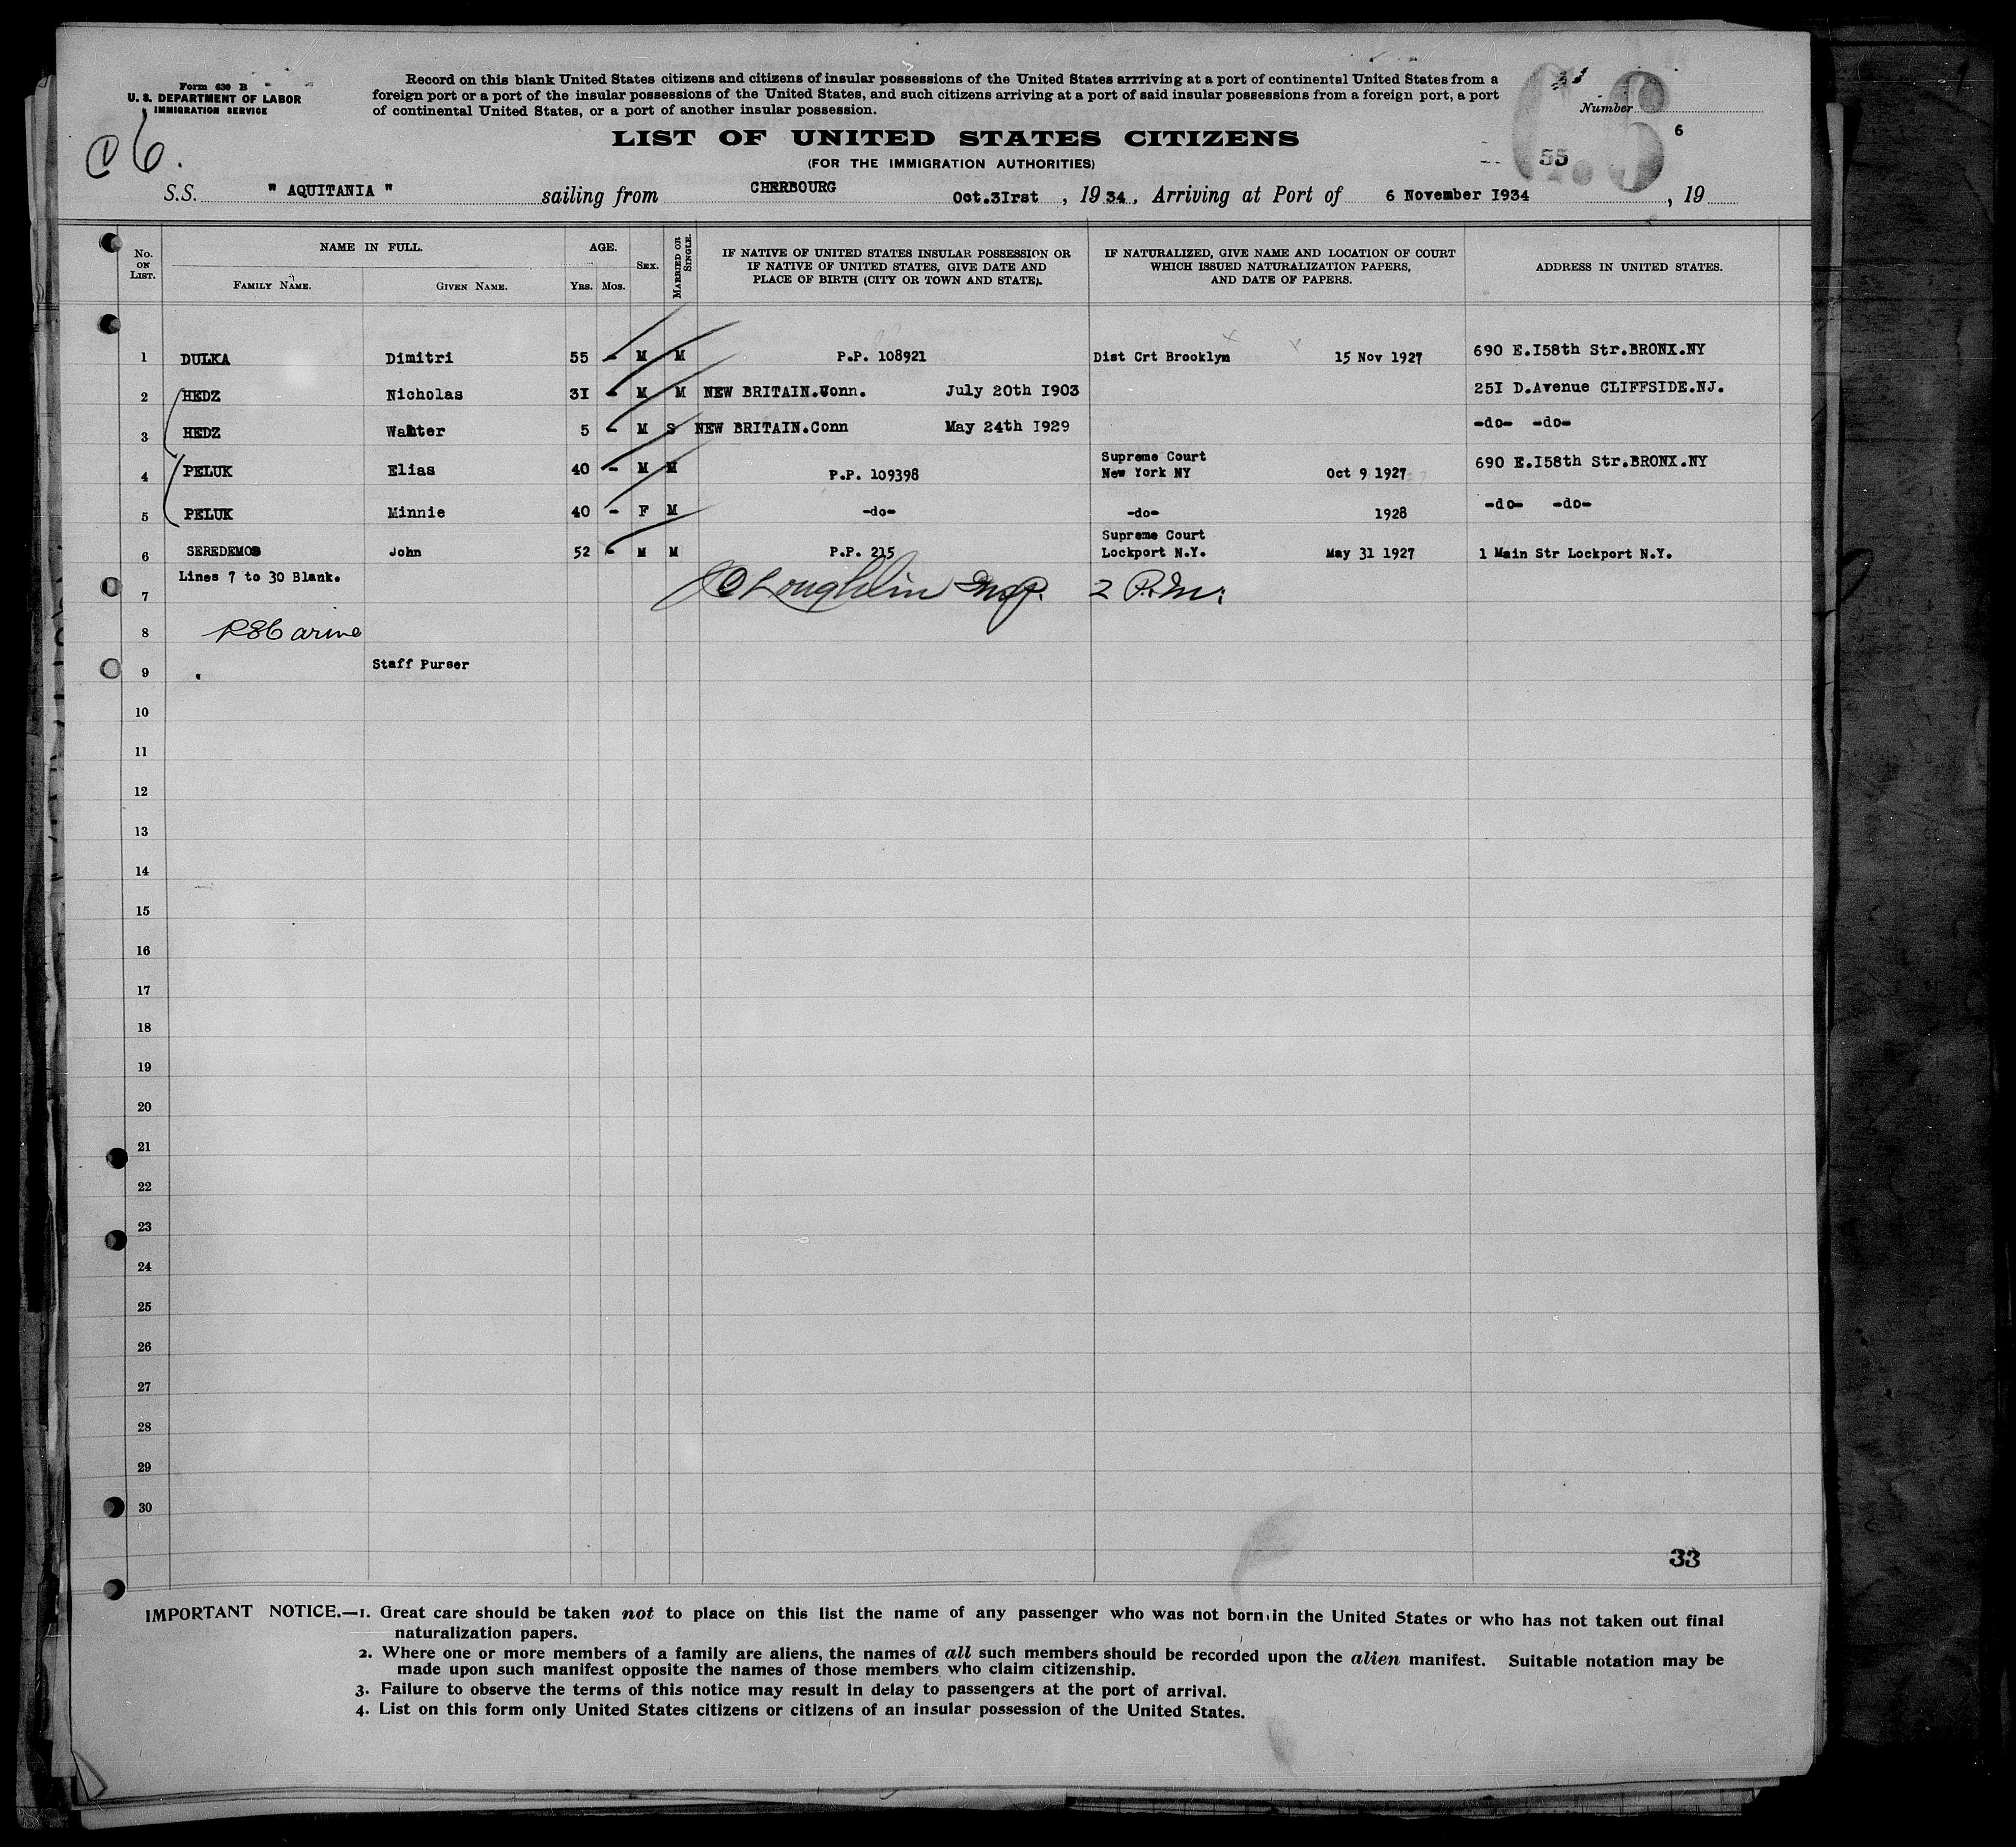 Form 630 B
U. S. DEPARTMENT OF LABOR
IMMIGRATION SERVICE
Record on this blank United States citizens and citizens of insular possessions of the United States arrriving at a port of continental United States from a
foreign port or a port of the insular possessions of the United States, and such citizens arriving at a port of said insular possessions from a foreign port, a port
of continental United States, or a port of another insular possession.
Number
6
55
C6.
LIST OF UNITED STATES CITIZENS
(FOR THE IMMIGRATION AUTHORITIES)
S.S. " AQUITANIA " sailing from CHERBOURG Oct.3Irst , 19 34 , Arriving at Port of 6 November I934 , 19
No. ON LIST. NAME IN FULL. AGE. SEX. MARRIED OR SINGLE. IF NATIVE OF UNITED STATES INSULAR POSSESSION OR IF NATIVE OF UNITED STATES, GIVE DATE AND PLACE OF BIRTH (CITY OR TOWN AND STATE). IF NATURALIZED, GIVE NAME AND LOCATION OF COURT WHICH ISSUED NATURALIZATION PAPERS, AND DATE OF PAPERS. ADDRESS IN UNITED STATES.
FAMILY NAME. GIVEN NAME. YRS. MOS.
1 DULKA Dimitri 55 - M M P.P. 108921 Dist Crt Brooklyn 15 Nov 1927 690 E.I58th Str.BRONX.NY
2 HEDZ Nicholas 3I - M M NEW BRITAIN.Conn. July 20th I903 25I D.Avenue CLIFFSIDE.NJ.
3 HEDZ Walter 5 - M S NEW BRITAIN.Conn May 24th I929 -do- -do-
4 PELUK Elias 40 - M M P.P. 109398 Supreme Court New York NY Oct 9 1927 690 E.I58th Str.BRONX.NY
5 PELUK Minnie 40 - F M -do- -do- 1928 -do- -do-
6 SEREDEMOS John 52 - M M P.P. 215 Supreme Court Lockport N.Y. May 31 1927 1 Main Str Lockport N.Y.
Lines 7 to 30 Blank.
7 O'Loughlin Insp. 2 P.M.
8
9 Staff Purser
10
11
12
13
14
15
16
17
18
19
20
21
22
23
24
25
26
27
28
29
30
33
IMPORTANT NOTICE.—1. Great care should be taken not to place on this list the name of any passenger who was not born in the United States or who has not taken out final
naturalization papers.
2. Where one or more members of a family are aliens, the names of all such members should be recorded upon the alien manifest. Suitable notation may be
made upon such manifest opposite the names of those members who claim citizenship.
3. Failure to observe the terms of this notice may result in delay to passengers at the port of arrival.
4. List on this form only United States citizens or citizens of an insular possession of the United States.